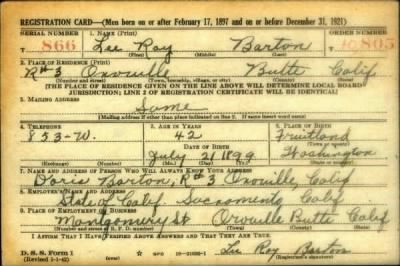 REGISTRATION CARD—(Men born on or after February 17, 1897 and on or before December 31, 1921)
SERIAL NUMBER 1. NAME (Print) ORDER NUMBER
T 866 Lee Roy Barton T 10805
(First) (Middle) (Last)
2. PLACE OF RESIDENCE (Print)
Rt 3 Oroville Butte Calif
(Number and street) (Town, township, village, or city) (County) (State)
(THE PLACE OF RESIDENCE GIVEN ON THE LINE ABOVE WILL DETERMINE LOCAL BOARD
JURISDICTION; LINE 2 OF REGISTRATION CERTIFICATE WILL BE IDENTICAL)
3. MAILING ADDRESS
Same
(Mailing address if other than place indicated on line 2. If same insert word same)
4. TELEPHONE 5. AGE IN YEARS 6. PLACE OF BIRTH
853-W. 42 Fruitland
DATE OF BIRTH (Town or county)
July 21 1899 Washington
(Exchange) (Number) (Mo.) (Day) (Yr.) (State or country)
7. NAME AND ADDRESS OF PERSON WHO WILL ALWAYS KNOW YOUR ADDRESS
Doris Barton, Rt 3 Oroville, Calif
8. EMPLOYER'S NAME AND ADDRESS
State of Calif. Sacramento, Calif
9. PLACE OF EMPLOYMENT OR BUSINESS
Montgomery St Oroville Butte Calif
(Number and street or R. F. D. number) (Town) (County) (State)
I AFFIRM THAT I HAVE VERIFIED ABOVE ANSWERS AND THAT THEY ARE TRUE.
D. S. S. Form 1
(Revised 1-1-42) (over) GPO 16-21630-1 Lee Roy Barton
(Registrant's signature)